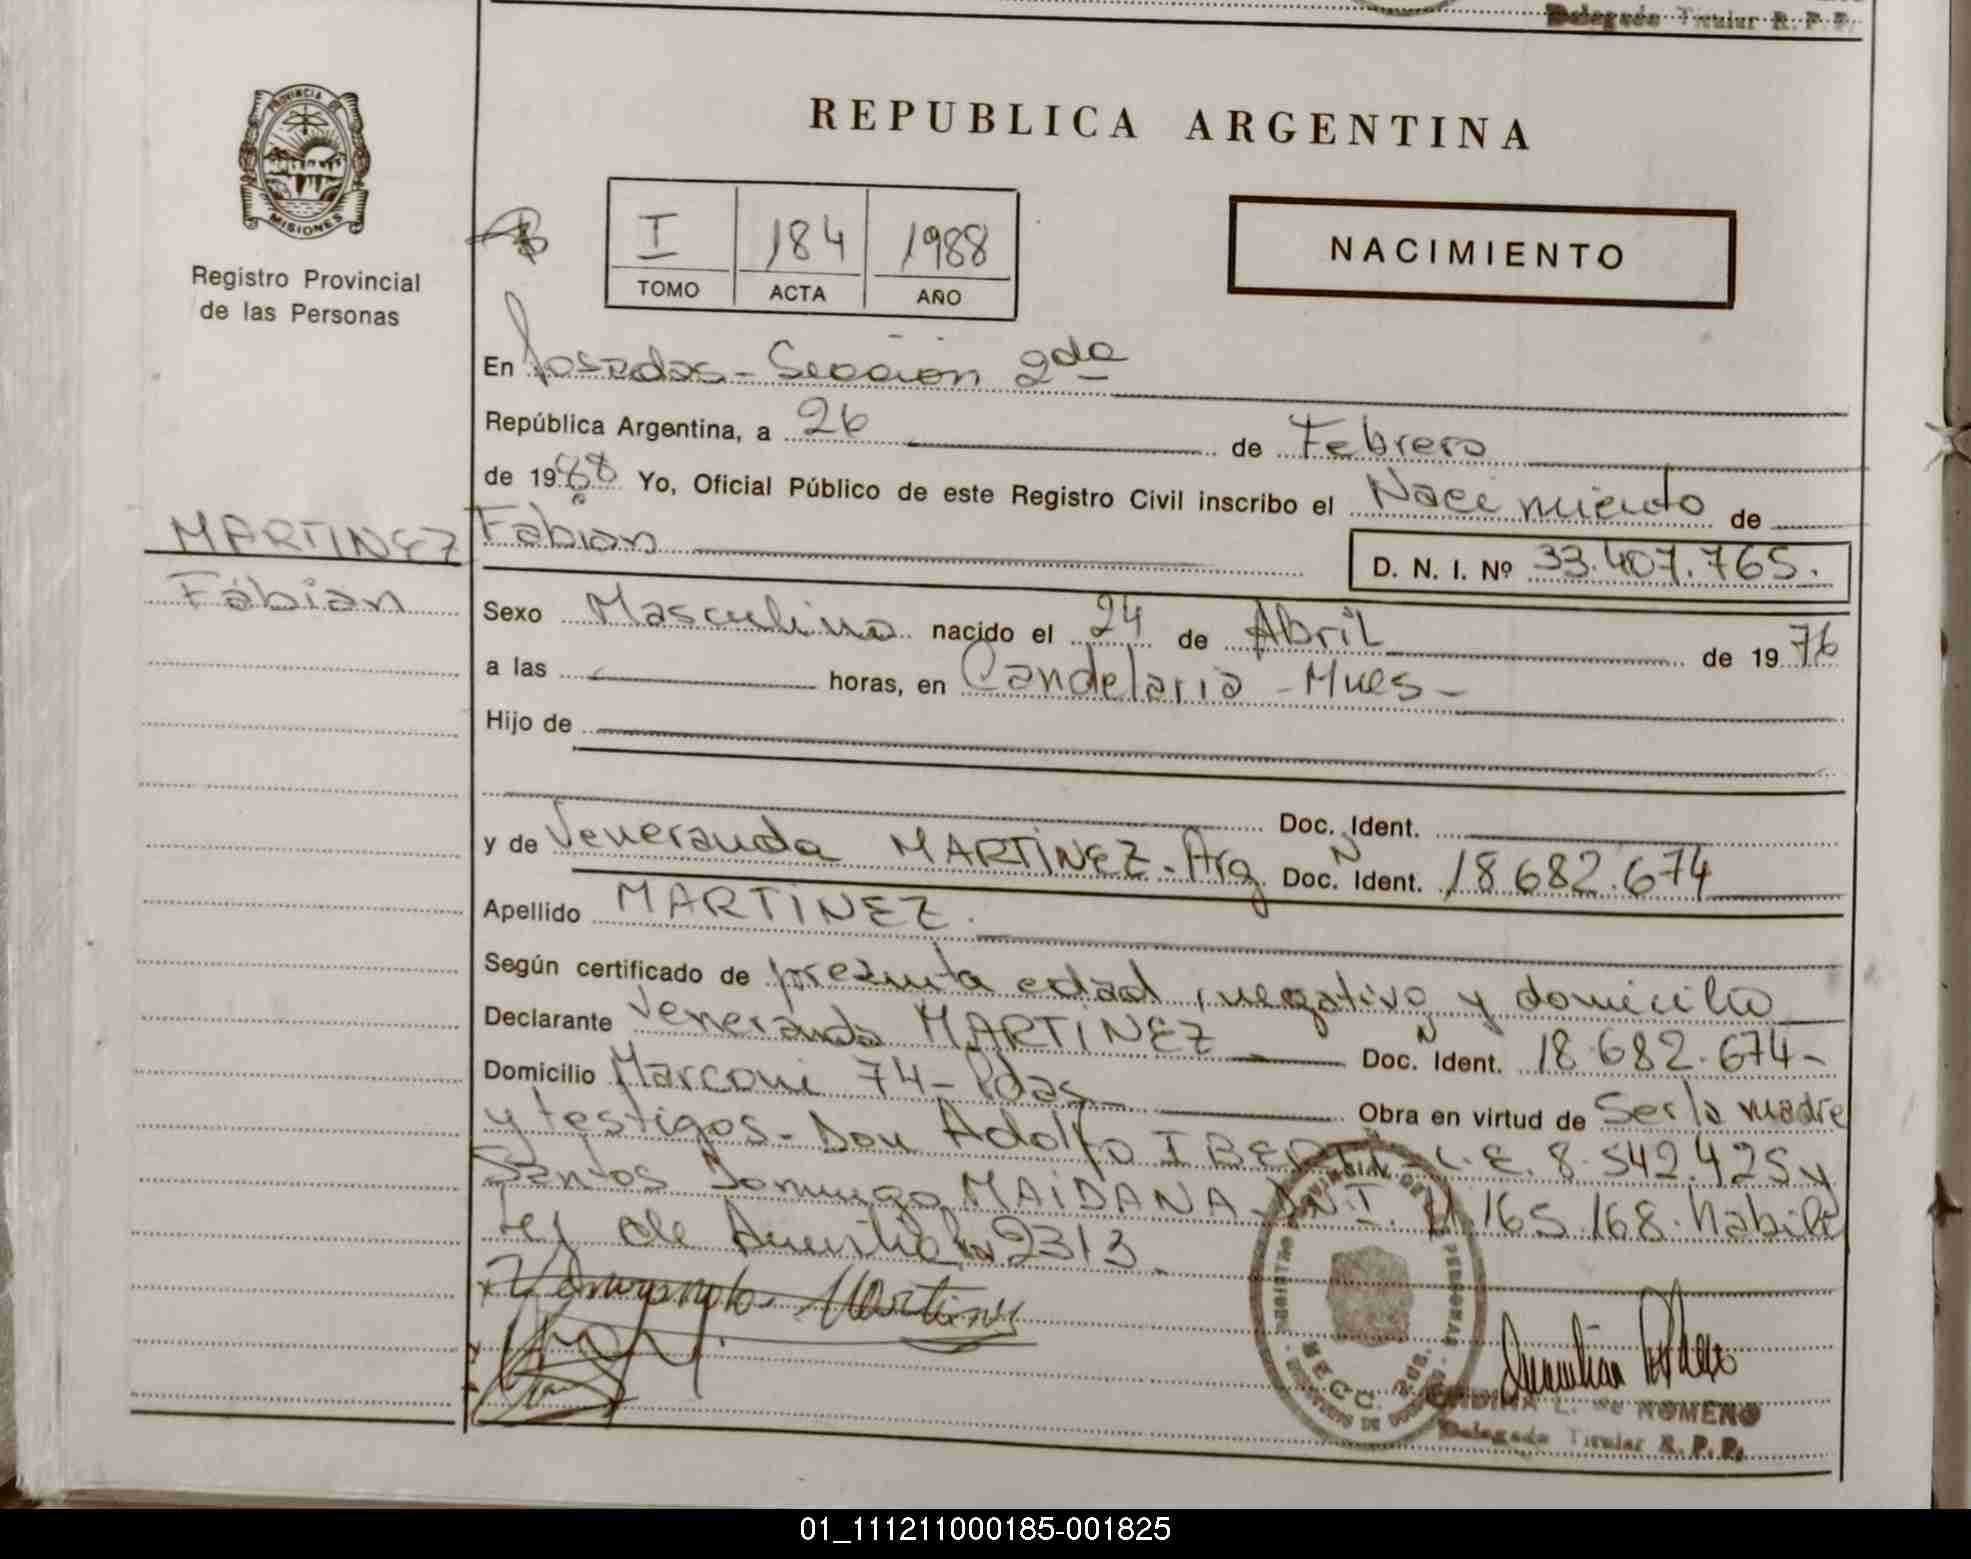 Delegado Titular R. P. P.
PROVINCIA DE
MISIONES
Registro Provincial
de las Personas
REPUBLICA ARGENTINA
I 184 1988
TOMO ACTA AÑO
NACIMIENTO
En Posadas - Sección 2da
República Argentina, a 26 de Febrero
de 1988 Yo, Oficial Público de este Registro Civil inscribo el Nacimiento de
MARTINEZ
Fabián
Fabián D. N. I. Nº 33.407.765.
Sexo Masculino nacido el 24 de Abril de 1976
a las horas, en Candelaria - Mnes -
Hijo de
Doc. Ident.
y de Veneranda MARTINEZ - Arg Doc. N Ident. 18.682.674
Apellido MARTINEZ.
Según certificado de prezunta edad, negativo y domicilio
Declarante Veneranda MARTINEZ Doc. N Ident. 18.682.674-
Domicilio Marconi 74 - Pdas Obra en virtud de Ser la madre
y testigos - Don Adolfo L.E. 8.542.425 y
Santos Domingo MAIDANA D.N.I. 165.168. habili
de 2313.
Martinez
ROMERO
Delegado Titular R. P. P.
01_111211000185-001825